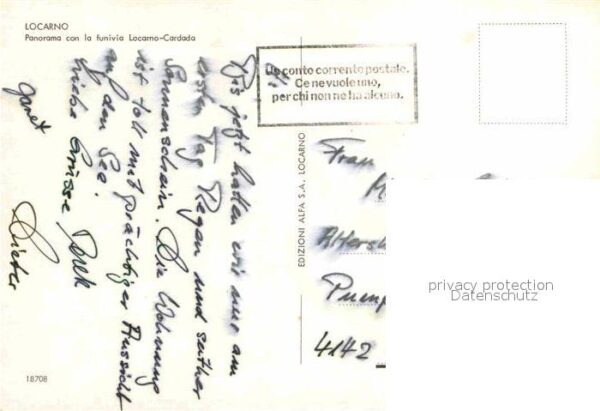 LOCARNO
Panorama con la funivia Locarno-Cardada
Bis jetzt hatten wir nur am
ersten Tag Regen und seither
Sonnenschein. Die Wohnung
ist toll mit prächtiger Aussicht
auf den See.
Liebe Grüsse
Dieter
Un conto corrente postale.
Ce ne vuole uno,
per chi non ne ha alcuno.
EDIZIONI ALFA S.A., LOCARNO
Frau
M
Alters
Pump
4142
privacy protection
Datenschutz
18708